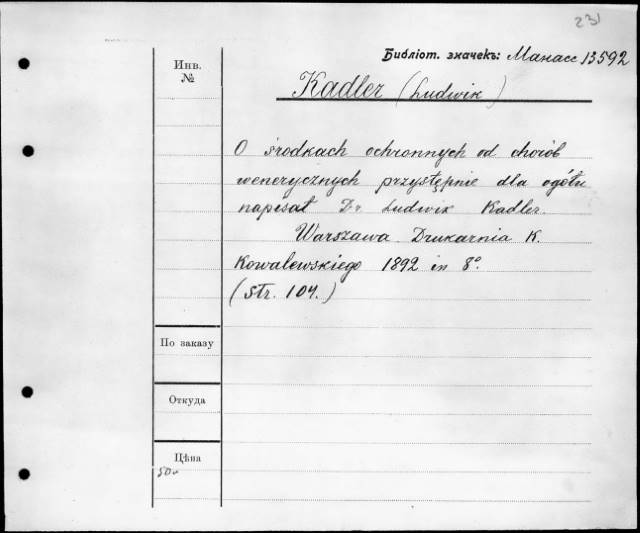 231
Библіот. значекъ: Манасс 13592
Инв.
№
Kadler (Ludwik)
O środkach ochronnych od chorób
wenerycznych przystępnie dla ogółu
napisał Dr. Ludwik Kadler.
Warszawa. Drukarnia K.
Kowalewskiego 1892 in 8°.
(str. 104.)
По заказу
Откуда
Цѣна
50к